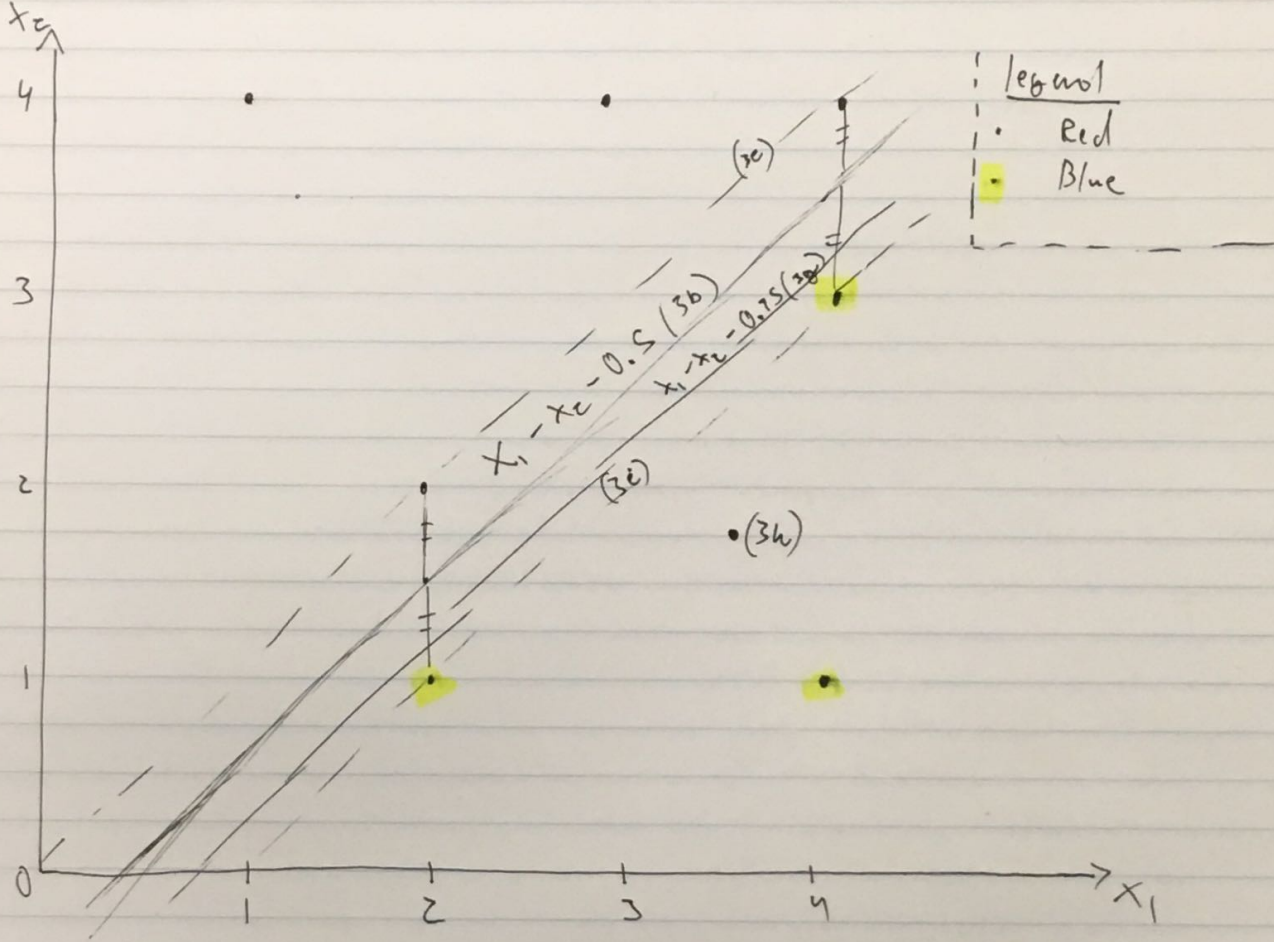 X₂
4
3
2
1
0
1
2
3
4
X₁
legend
Red
Blue
(3c)
X₁ - X₂ - 0.5 (3b)
X₁ - X₂ - 0.75 (3g)
(3c)
(3h)